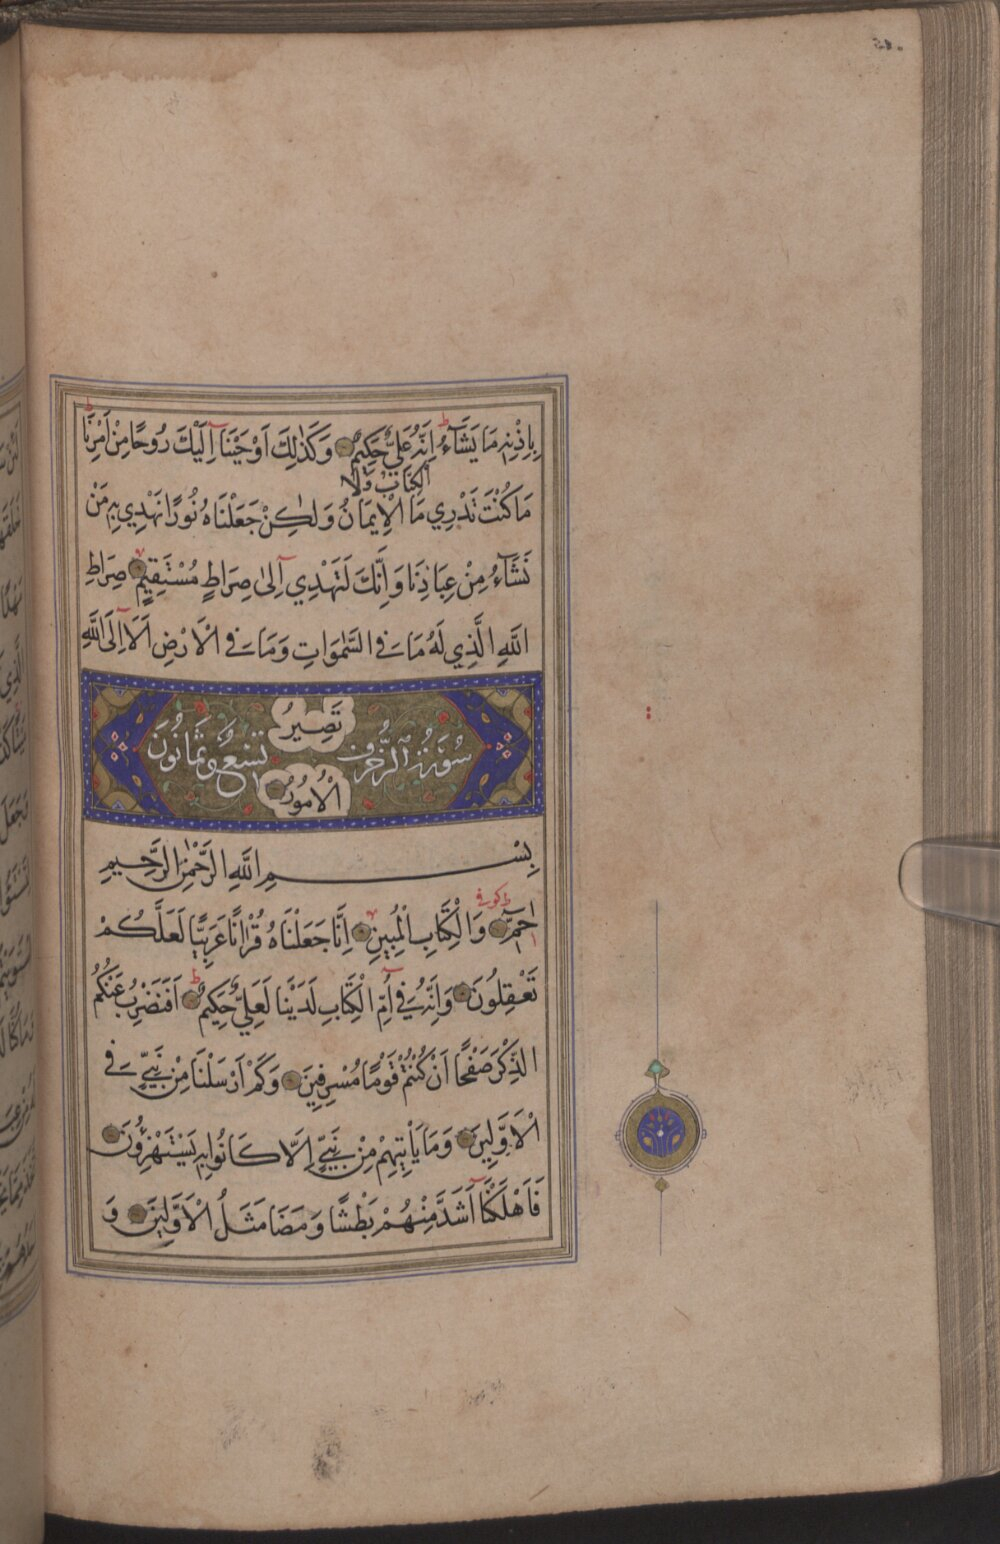 بِاِذْنِهٖ مَا يَشَآءُ اِنَّهُ عَلِيٌّ حَكِيمٌ وَكَذٰلِكَ اَوْحَيْنَآ اِلَيْكَ رُوحًا مِنْ اَمْرِنَا
الْكِتَابُ وَلَا
مَا كُنْتَ تَدْرِي مَا الْاِيمَانُ وَلٰكِنْ جَعَلْنَاهُ نُورًا نَهْدِي بِهٖ مَنْ
نَشَآءُ مِنْ عِبَادِنَا وَاِنَّكَ لَتَهْدِيٓ اِلٰى صِرَاطٍ مُسْتَقِيمٍ صِرَاطِ
اللّٰهِ الَّذِي لَهُ مَا فِي السَّمٰوَاتِ وَمَا فِي الْاَرْضِ اَلَآ اِلَى اللّٰهِ
تَصِيرُ
سُورَةُ الزُّخْرُفِ تِسْعٌ وَثَمَانُونَ
الْاُمُورُ
بِسْمِ اللّٰهِ الرَّحْمٰنِ الرَّحِيمِ
كوفي
حٰمٓ وَالْكِتَابِ الْمُبِينِ اِنَّا جَعَلْنَاهُ قُرْاٰنًا عَرَبِيًّا لَعَلَّكُمْ
تَعْقِلُونَ وَاِنَّهُ فِيٓ اُمِّ الْكِتَابِ لَدَيْنَا لَعَلِيٌّ حَكِيمٌ اَفَنَضْرِبُ عَنْكُمُ
الذِّكْرَ صَفْحًا اَنْ كُنْتُمْ قَوْمًا مُسْرِفِينَ وَكَمْ اَرْسَلْنَا مِنْ نَبِيٍّ فِي
الْاَوَّلِينَ وَمَا يَاْتِيهِمْ مِنْ نَبِيٍّ اِلَّا كَانُوا بِهٖ يَسْتَهْزِؤُنَ
فَاَهْلَكْنَآ اَشَدَّ مِنْهُمْ بَطْشًا وَمَضَا مَثَلُ الْاَوَّلِينَ وَ